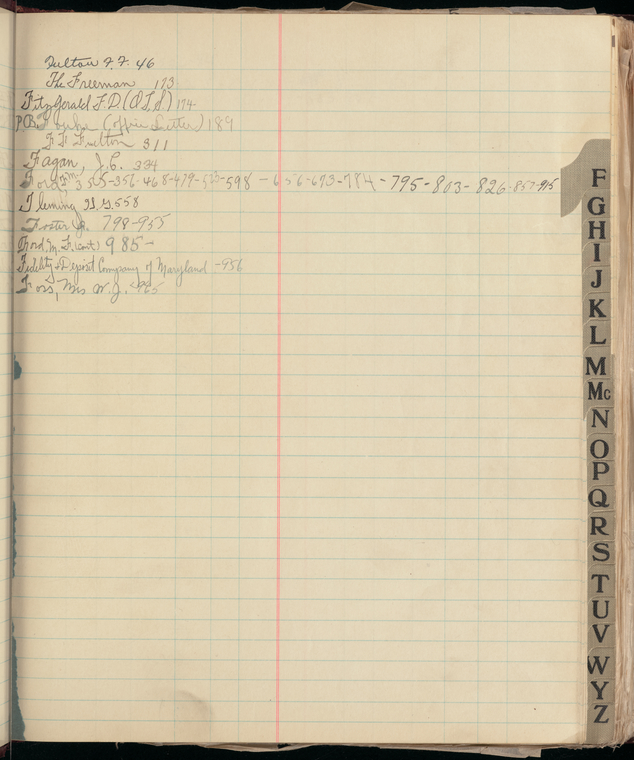 Fulton F. F. 46
The Freeman 173
FitzGerald F. D. (O I S) 174
(Office Letter) 189
F F Fulton 311
Fagan, J. C. 334
Ford 355-356-468-479- -598 - 656-693-784-795-803-826-857-915
Fleming 558
Foster J. 798-955
Ford, M. F. (cont) 985-
Fidelity & Deposit Company of Maryland -956
Foss, Mrs W. J. 965
F
G
H
I
J
K
L
M
Mc
N
O
P
Q
R
S
T
U
V
W
Y
Z